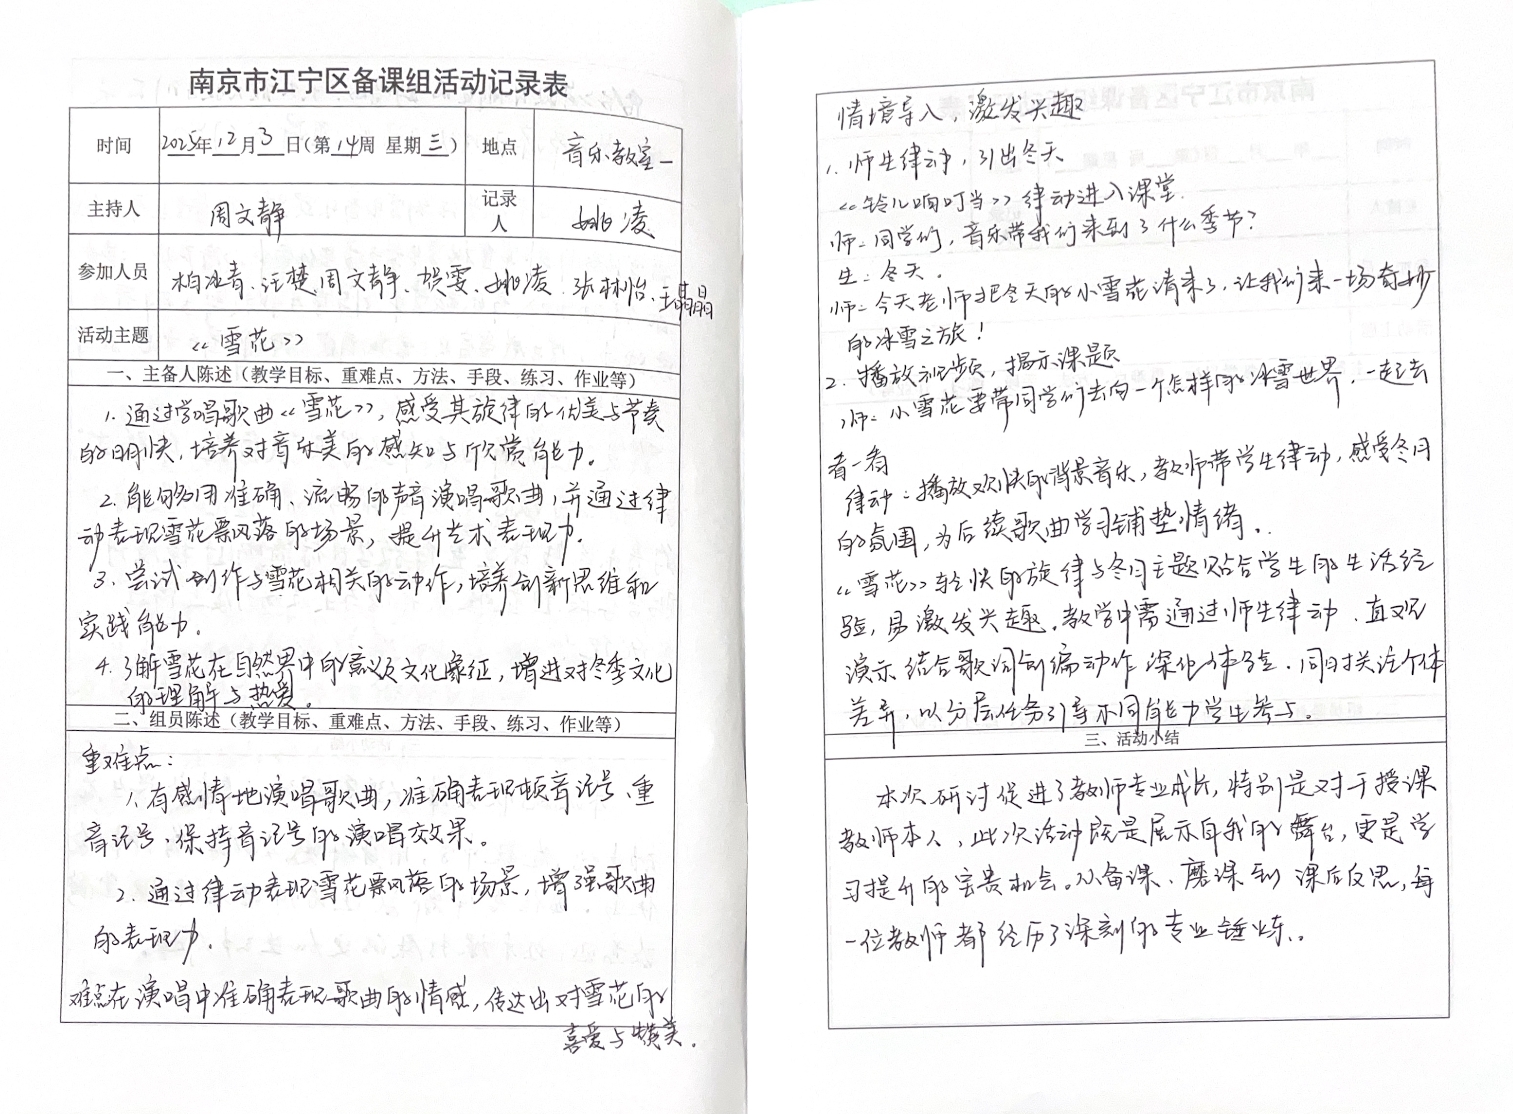 南京市江宁区备课组活动记录表
时间 2025年12月3日(第14周 星期三) 地点 音乐教室一
主持人 周文静 记录人 姚凌
参加人员 柏冰青、汪楚、周文静、贺雯、姚凌、张林怡、王晶晶
活动主题 《雪花》
一、主备人陈述（教学目标、重难点、方法、手段、练习、作业等）
1. 通过学唱歌曲《雪花》，感受其旋律的优美与节奏
的明快，培养对音乐美的感知与欣赏能力。
2. 能够用准确、流畅的声音演唱歌曲，并通过律
动表现雪花飘落的场景，提升艺术表现力。
3. 尝试创作与雪花相关的动作，培养创新思维和
实践能力。
4. 了解雪花在自然界中的意义及文化象征，增进对冬季文化
的理解与热爱。
二、组员陈述（教学目标、重难点、方法、手段、练习、作业等）
重难点：
1. 有感情地演唱歌曲，准确表现顿音记号、重
音记号、保持音记号的演唱效果。
2. 通过律动表现雪花飘落的场景，增强歌曲
的表现力。
难点在演唱中准确表现歌曲的情感，传达出对雪花的
喜爱与赞美。
情境导入，激发兴趣
1. 师生律动，引出冬天
《铃儿响叮当》律动进入课堂.
师：同学们，音乐带我们来到了什么季节？
生：冬天。
师：今天老师把冬天的小雪花请来了，让我们来一场奇妙
的冰雪之旅！
2. 播放视频，揭示课题
师：小雪花要带同学们去向一个怎样的冰雪世界，一起去
看一看
律动：播放欢快的背景音乐，教师带学生律动，感受冬日
的氛围，为后续歌曲学习铺垫情绪。
《雪花》轻快的旋律与冬日主题贴合学生的生活经
验，易激发兴趣。教学中需通过师生律动、直观
演示结合歌词创编动作深化体验。同时关注个体
差异，以分层任务引导不同能力学生参与。
三、活动小结
本次研讨促进了教师专业成长，特别是对于授课
教师本人，此次活动既是展示自我的舞台，更是学
习提升的宝贵机会。从备课、磨课到课后反思，每
一位教师都经历了深刻的专业锤炼。